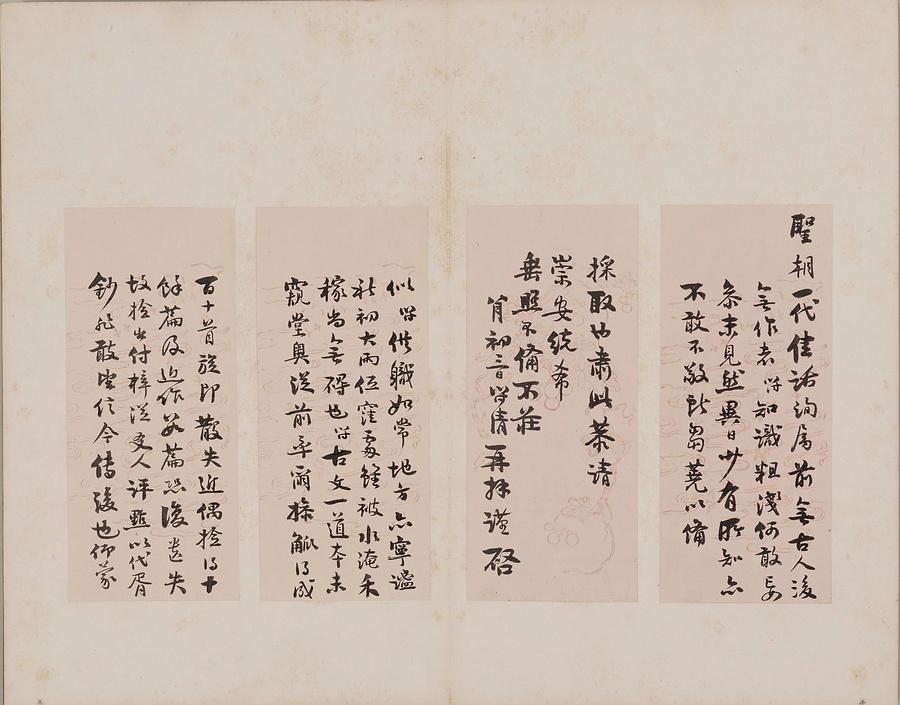 聖朝一代佳話洵屬前無古人後
無作者 知識粗淺何敢妄
參末見然異日少有所知亦
不敢不敬獻芻蕘以備
採取也肅此恭請
崇安統希
垂照不備不莊
再拜謹啓
供職如常地方亦寧謐
秋初大雨低窪處雖被水淹禾
稼尚無礙也 古文一道本未
窺堂奧從前率爾操觚得成
百十首旋即散失近偶撿得十
餘篇及近作數篇恐復遺失
故撿出付梓從友人評點以代胥
鈔非敢望信今傳後也仰蒙